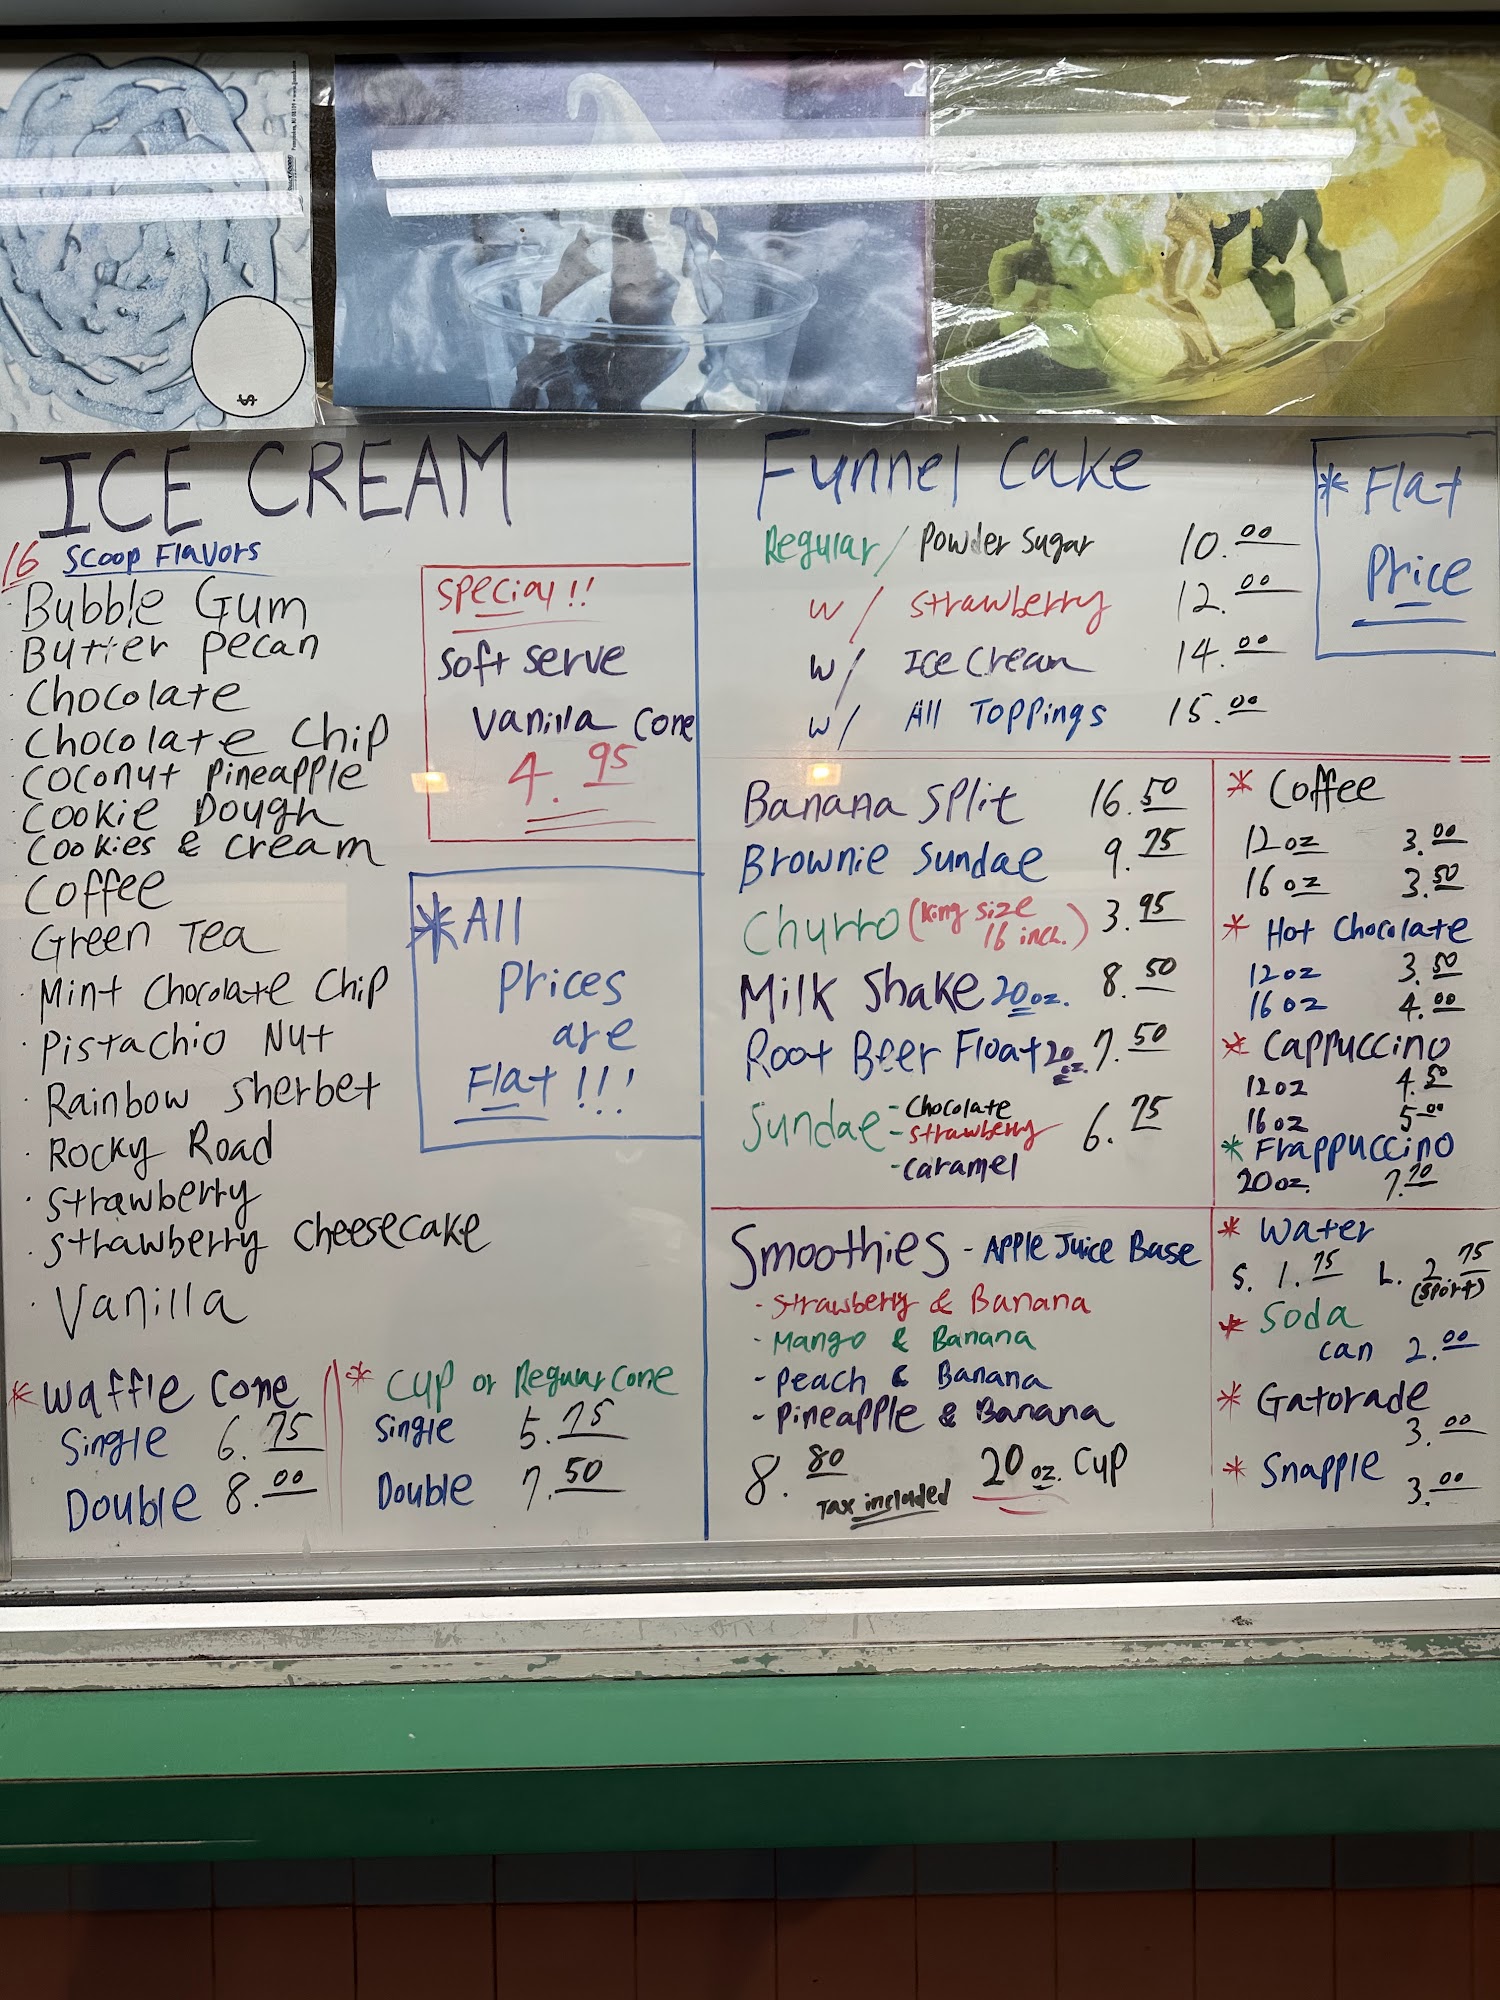 ICE CREAM
16 Scoop Flavors
· Bubble Gum
· Butter Pecan
· Chocolate
· Chocolate Chip
Coconut Pineapple
Cookie Dough
Cookies & Cream
Coffee
Green Tea
· Mint Chocolate Chip
· Pistachio Nut
· Rainbow Sherbet
· Rocky Road
· Strawberry
· Strawberry Cheesecake
· Vanilla
* Waffle Cone
Single 6.75
Double 8.00
* Cup or Regular Cone
Single 5.75
Double 7.50
Special!!
Soft Serve
Vanilla Cone
4.95
*All
Prices
are
Flat!!!
Funnel Cake
Regular/ Powder Sugar 10.00
w/ Strawberry 12.00
w/ Ice Cream 14.00
w/ All Toppings 15.00
* Flat
Price
Banana Split 16.50
Brownie Sundae 9.75
Churro (King Size
16 inch.) 3.95
Milk Shake 20oz. 8.50
Root Beer Float 20oz. 7.50
Sundae - Chocolate
- Strawberry 6.75
- Caramel
Smoothies - Apple Juice Base
- Strawberry & Banana
- Mango & Banana
- Peach & Banana
- Pineapple & Banana
8.80 20 oz. Cup
Tax included
* Coffee
12oz 3.00
16oz 3.50
* Hot Chocolate
12oz 3.50
16oz 4.00
* Cappuccino
12oz 4.50
16oz 5.00
* Frappuccino
20oz. 7.70
* Water
S. 1.75 L. 2.75
(Sport)
* Soda
can 2.00
* Gatorade
3.00
* Snapple
3.00
$